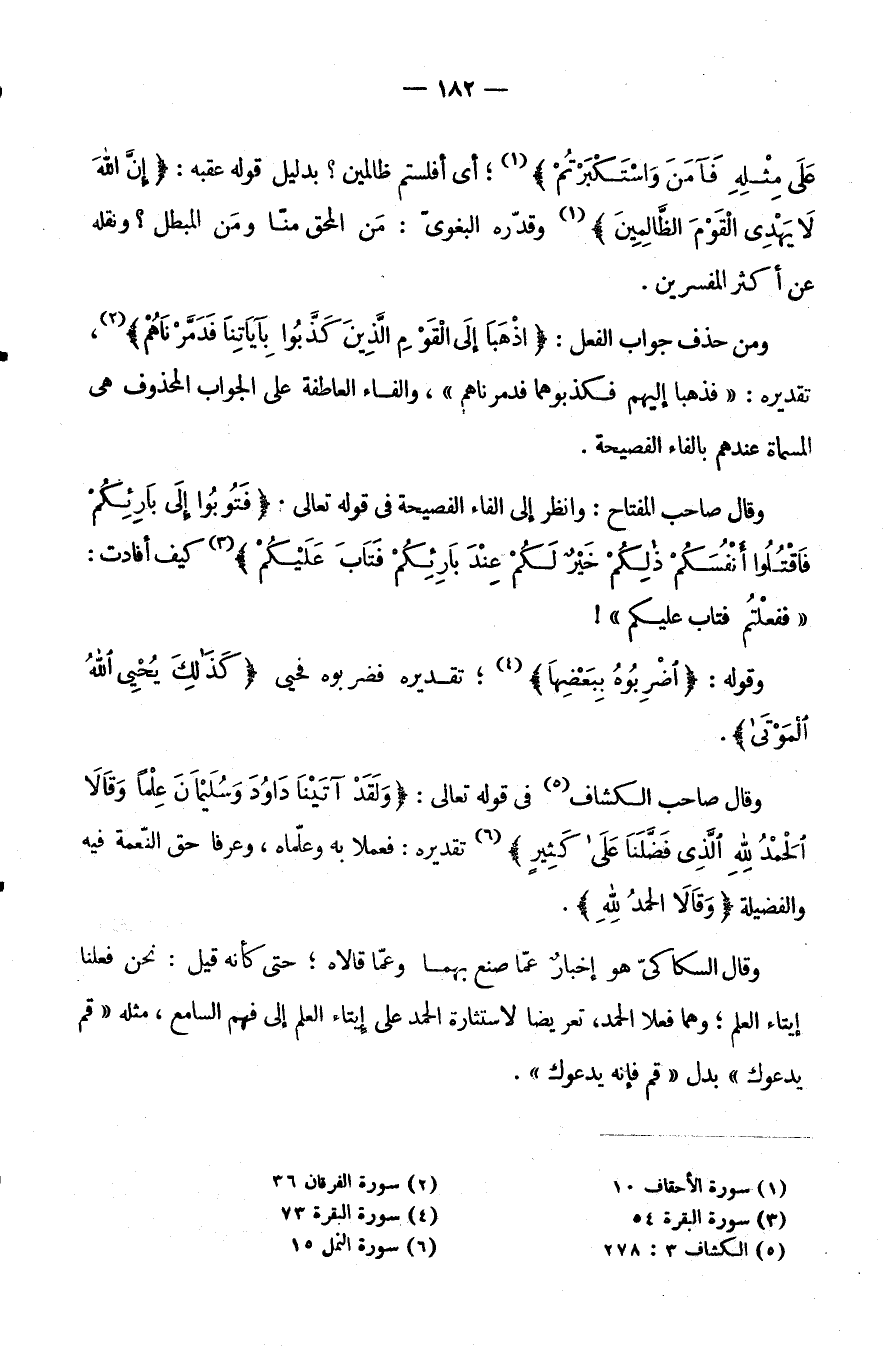 — ١٨٢ —
عَلَى مِثْلِهِ فَآمَنَ وَاسْتَكْبَرْتُمْ ﴾ (١) ؛ أى أفلستم ظالمين ؟ بدليل قوله عقبه : ﴿ إِنَّ اللهَ
لَا يَهْدِى الْقَوْمَ الظَّالِمِينَ ﴾ (١) وقدّره البغوىّ : مَن المحق منّا ومَن المبطل ؟ ونقله
عن أكثر المفسرين .
ومن حذف جواب الفعل : ﴿ اذْهَبَا إِلَى الْقَوْمِ الَّذِينَ كَذَّبُوا بِآيَاتِنَا فَدَمَّرْنَاهُمْ ﴾ (٢) ،
تقديره : « فذهبا إليهم فكذبوهما فدمرناهم » ، والفاء العاطفة على الجواب المحذوف هى
المسماة عندهم بالفاء الفصيحة .
وقال صاحب المفتاح : وانظر إلى الفاء الفصيحة فى قوله تعالى : ﴿ فَتُوبُوا إِلَى بَارِئِكُمْ
فَاقْتُلُوا أَنْفُسَكُمْ ذٰلِكُمْ خَيْرٌ لَكُمْ عِنْدَ بَارِئِكُمْ فَتَابَ عَلَيْكُمْ ﴾ (٣) كيف أفادت :
« ففعلْتُم فتاب عليكم » !
وقوله : ﴿ ٱضْرِبُوهُ بِبَعْضِهَا ﴾ (٤) ؛ تقديره فضربوه فحيى ﴿ كَذَٰلِكَ يُحْيِى ٱللهُ
ٱلْمَوْتَىٰ ﴾ .
وقال صاحب الكشاف (٥) فى قوله تعالى : ﴿ وَلَقَدْ آتَيْنَا دَاوُدَ وَسُلَيْمَانَ عِلْمًا وَقَالَا
ٱلْحَمْدُ لِلهِ ٱلَّذِى فَضَّلَنَا عَلَىٰ كَثِيرٍ ﴾ (٦) تقديره : فعملا به وعلّماه ، وعرفا حق النّعمة فيه
والفضيلة ﴿ وَقَالَا الْحَمدُ لِلهِ ﴾ .
وقال السكاكىّ هو إخبارٌ عمّا صنع بهما وعمّا قالاه ؛ حتى كأنه قيل : نحن فعلنا
إيتاء العلم ؛ وهما فعلا الحمد، تعريضا لاستثارة الحمد على إيتاء العلم إلى فهم السامع ، مثله « قم
يدعوك » بدل « قم فإنه يدعوك » .
(١) سورة الأحقاف ١٠ (٢) سورة الفرقان ٣٦
(٣) سورة البقرة ٥٤ (٤) سورة البقرة ٧٣
(٥) الكشاف ٣ : ٢٧٨ (٦) سورة النمل ١٥